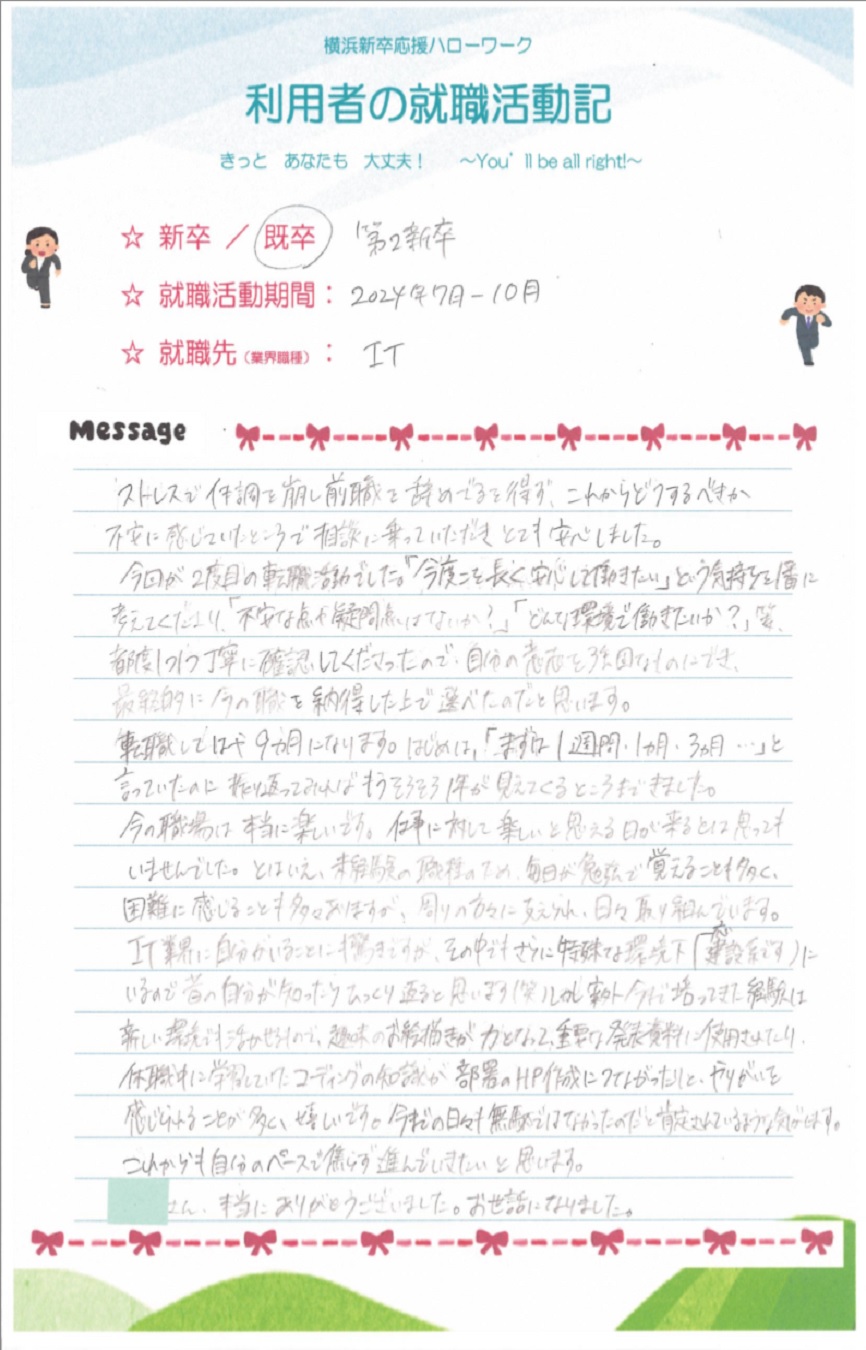 横浜新卒応援ハローワーク
利用者の就職活動記
きっと　あなたも　大丈夫！　～You'll be all right!～
☆ 新卒 ／ 既卒　第2新卒
☆ 就職活動期間： 2024年7月-10月
☆ 就職先（業界職種）： IT
Message
ストレスで体調を崩し前職を辞めざるを得ず、これからどうするべきか
不安に感じていたところで相談に乗っていただきとても安心しました。
今回が2度目の転職活動でした。「今度こそ長く安心して働きたい」という気持ちを1番に
考えてくださり、「不安な点や疑問点はないか？」「どんな環境で働きたいか？」等、
都度1つ1つ丁寧に確認してくださったので、自分の意志を強固なものにでき、
最終的に今の職を納得した上で選べたのだと思います。
転職してはや9カ月になります。はじめは、「まずは1週間・1カ月・3カ月…」と
言っていたのに振り返ってみればもうそろそろ1年が見えてくるところまできました。
今の職場は本当に楽しいです。仕事に対して楽しいと思える日が来るとは思っても
いませんでした。とはいえ、未経験の職種のため、毎日が勉強で覚えることも多く、
困難に感じることも多々ありますが、周りの方々に支えられ、日々取り組んでいます。
IT業界に自分がいることにも驚きですが、その中でもさらに特殊な環境下（建設系です）に
いるので昔の自分が知ったらひっくり返ると思います（笑）しかし、今まで培ってきた経験は
新しい環境でも活かせるもので、趣味のお絵描きが力となって、重要な発表資料に使用されたり、
休職中に学習していたコーディングの知識が部署のHP作成につながったりと、やりがいを
感じられることが多く、嬉しいです。今までの日々も無駄ではなかったのだと肯定されているような気がします。
これからも自分のペースで焦らず進んでいきたいと思います。
さん、本当にありがとうございました。お世話になりました。